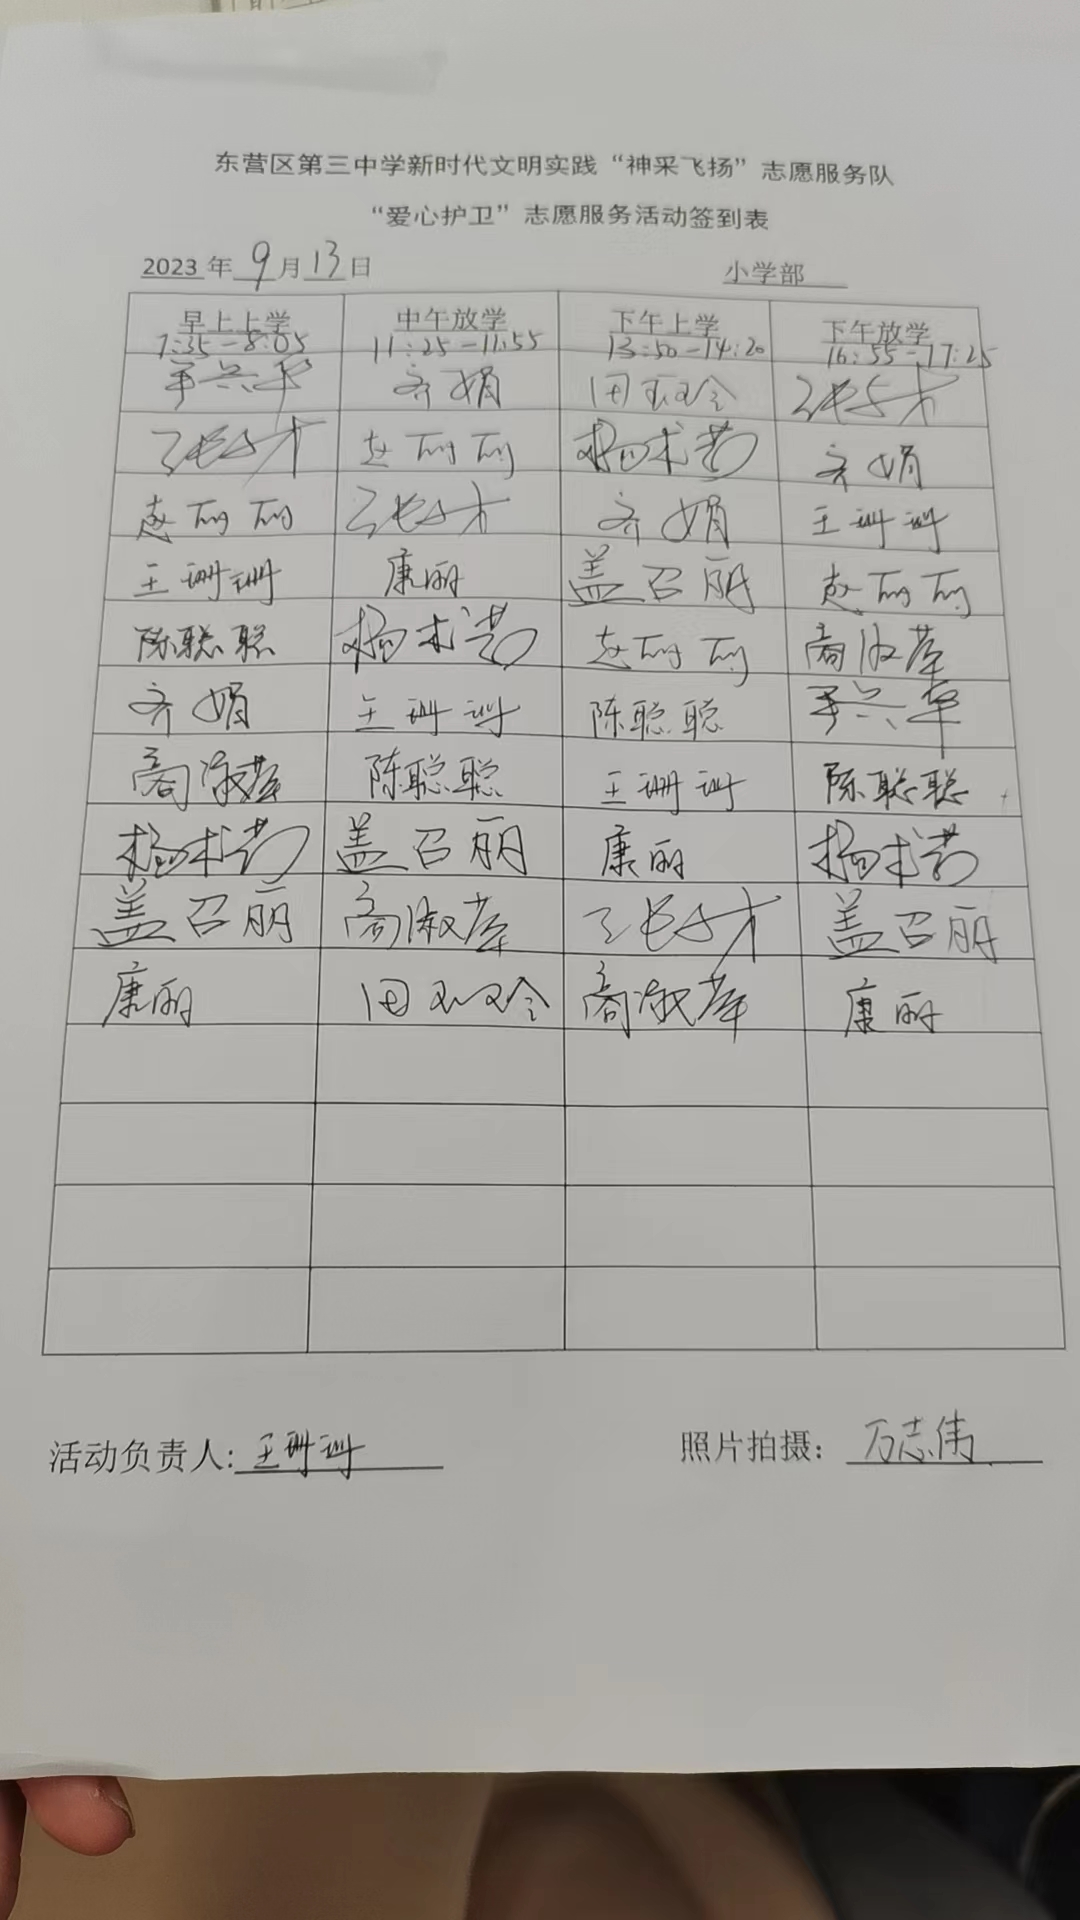 东营区第三中学新时代文明实践“神采飞扬”志愿服务队
“爱心护卫”志愿服务活动签到表
2023年9月13日 小学部
早上上学 中午放学 下午上学 下午放学
7:35-8:05 11:25-11:55 13:50-14:20 16:55-17:25
齐娟 田
赵丽丽 杨术芳 齐娟
赵丽丽 齐娟 王珊珊
王珊珊 康丽 盖召丽 赵丽丽
陈聪聪 杨术芳 赵丽丽 商淑萍
齐娟 王珊珊 陈聪聪
商淑萍 陈聪聪 王珊珊 陈聪聪
杨术芳 盖召丽 康丽 杨术芳
盖召丽 商淑萍 盖召丽
康丽 田 商淑萍 康丽
活动负责人:王珊珊 照片拍摄：万志伟